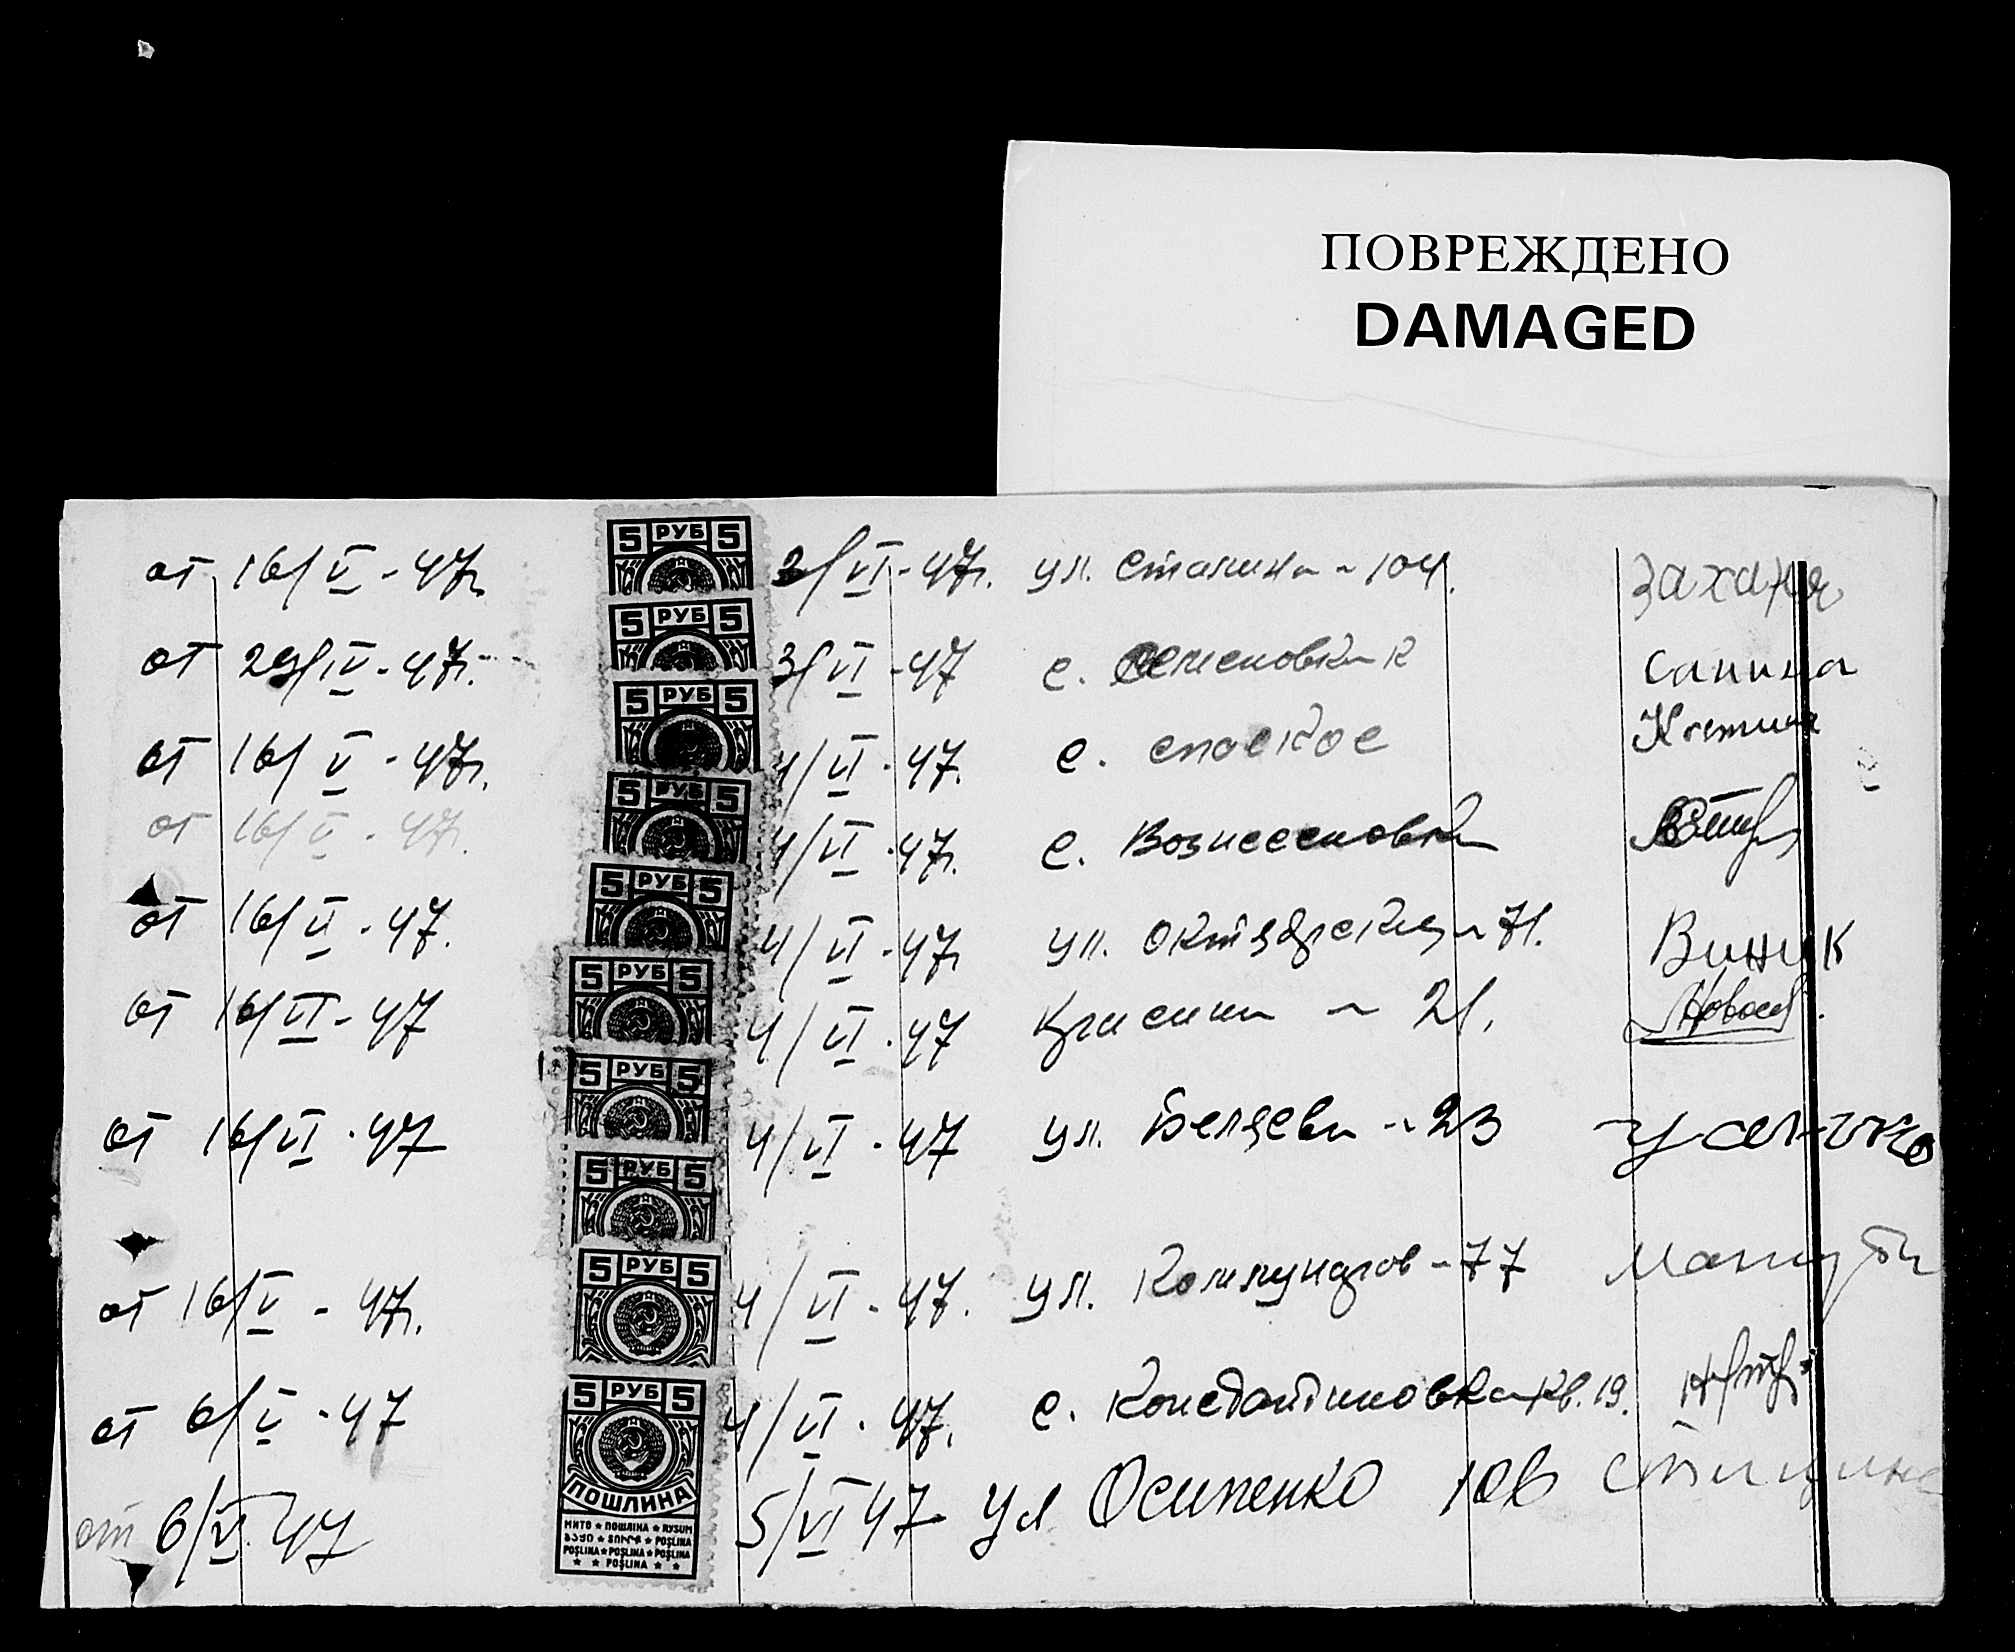 ПОВРЕЖДЕНО
DAMAGED
от 16/V - 47г. 5 РУБ 5 3/VI - 47г. ул. Сталина - 104. Захаря
от 29/IV - 47г. 5 РУБ 5 3/VI - 47 с. Семеновка к Санина
от 16/V - 47г. 5 РУБ 5 4/VI - 47. с. Спаское
от 16/V - 47г. 5 РУБ 5 4/VI - 47г. с. Вознесеновка
от 16/V - 47. 5 РУБ 5 4/VI - 47г ул. Октябрьская - 71. Винник
от 16/VI - 47 5 РУБ 5 4/VI - 47 Красина - 21.
от 16/VI - 47 5 РУБ 5 4/VI - 47 ул. Беляева - 23
5 РУБ 5
от 16/V - 47г. 5 РУБ 5 4/VI - 47. ул. Коммунаров - 77
от 6/V - 47 5 РУБ 5 4/VI - 47. с. Константиновка кв. 19.
ПОШЛИНА
от 6/VI. 47 5/VI 47 ул Осипенко 10в
МИТО ★ ПОШЛІНА ★ RYSUM
ბაჟი ★ ՏՈՒՐՔ ★ POŞLINA
POŞLINA ★ POŞLINA ★ POŞLINA
★ ★ POŞLINA ★ ★